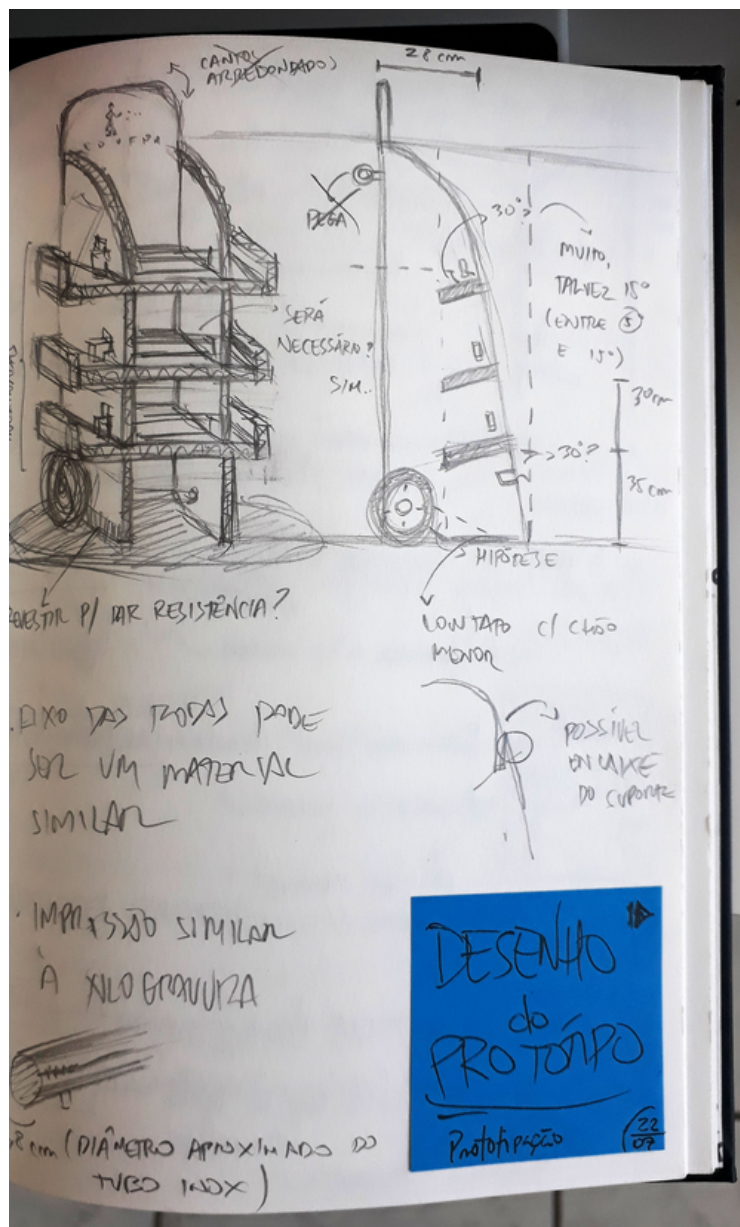 CANTOS
ARREDONDADOS
28 cm
PEGA
30°?
MUITO,
TALVEZ 15°
(ENTRE 5
E 15°)
SERÁ
NECESSÁRIO?
SIM..
30cm
30°?
35 cm
HIPÓTESE
REVESTIR P/ DAR RESISTÊNCIA?
CONTATO C/ CHÃO
MENOR
. EIXO DAS RODAS PODE
SER UM MATERIAL
SIMILAR
POSSÍVEL
ENCAIXE
DO SUPORTE
· IMPRESSÃO SIMILAR
À XILOGRAVURA
DESENHO
do
PROTÓTIPO
Prototipação
22
07
cm (DIÂMETRO APROXIMADO DO
TUBO INOX)